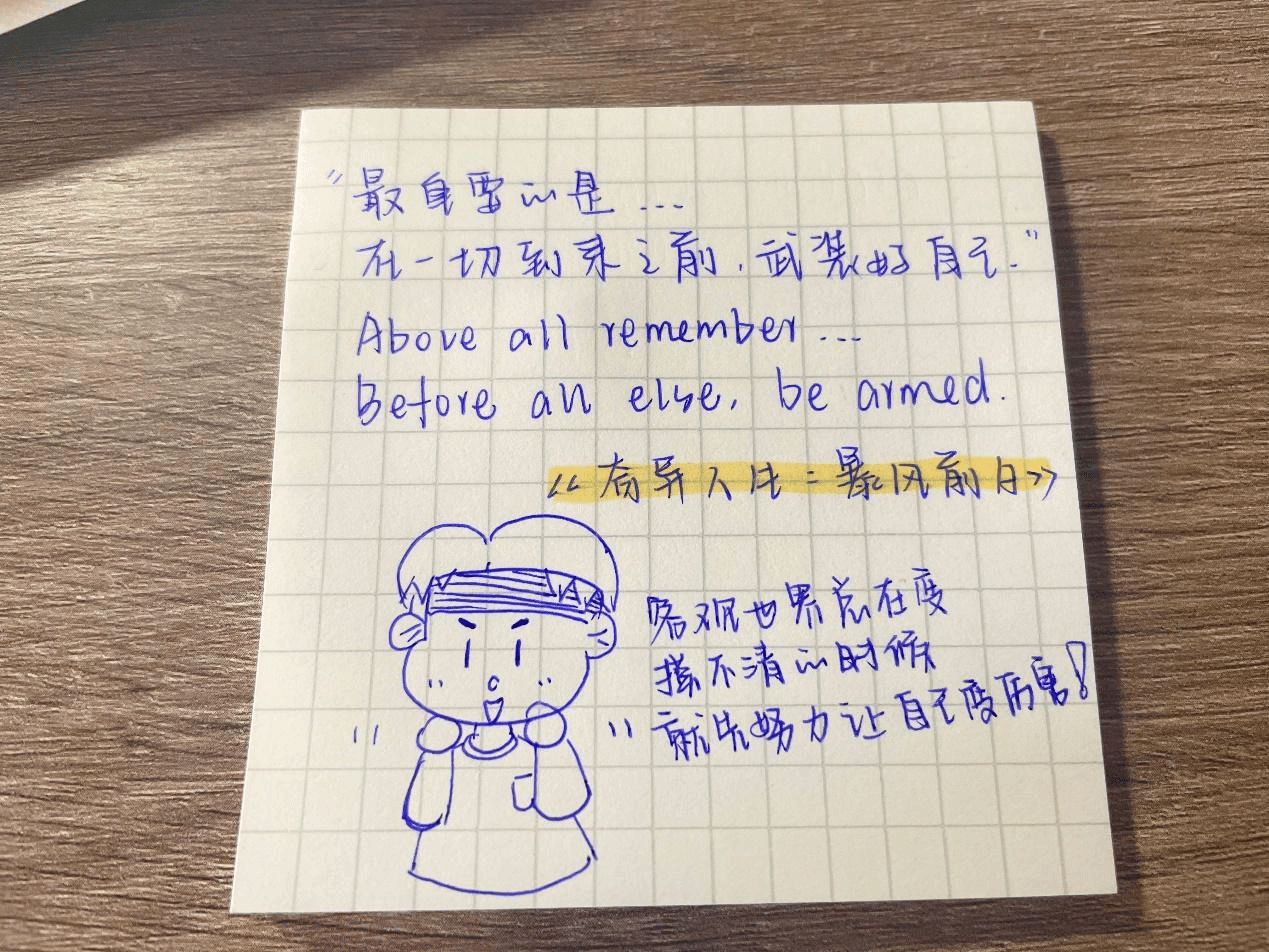 “最重要的是...
在一切到来之前,武装好自己.”
Above all remember...
Before all else, be armed.
《奇异人生:暴风前夕》
客观世界总在变
搞不清的时候
就先努力让自己变厉害!